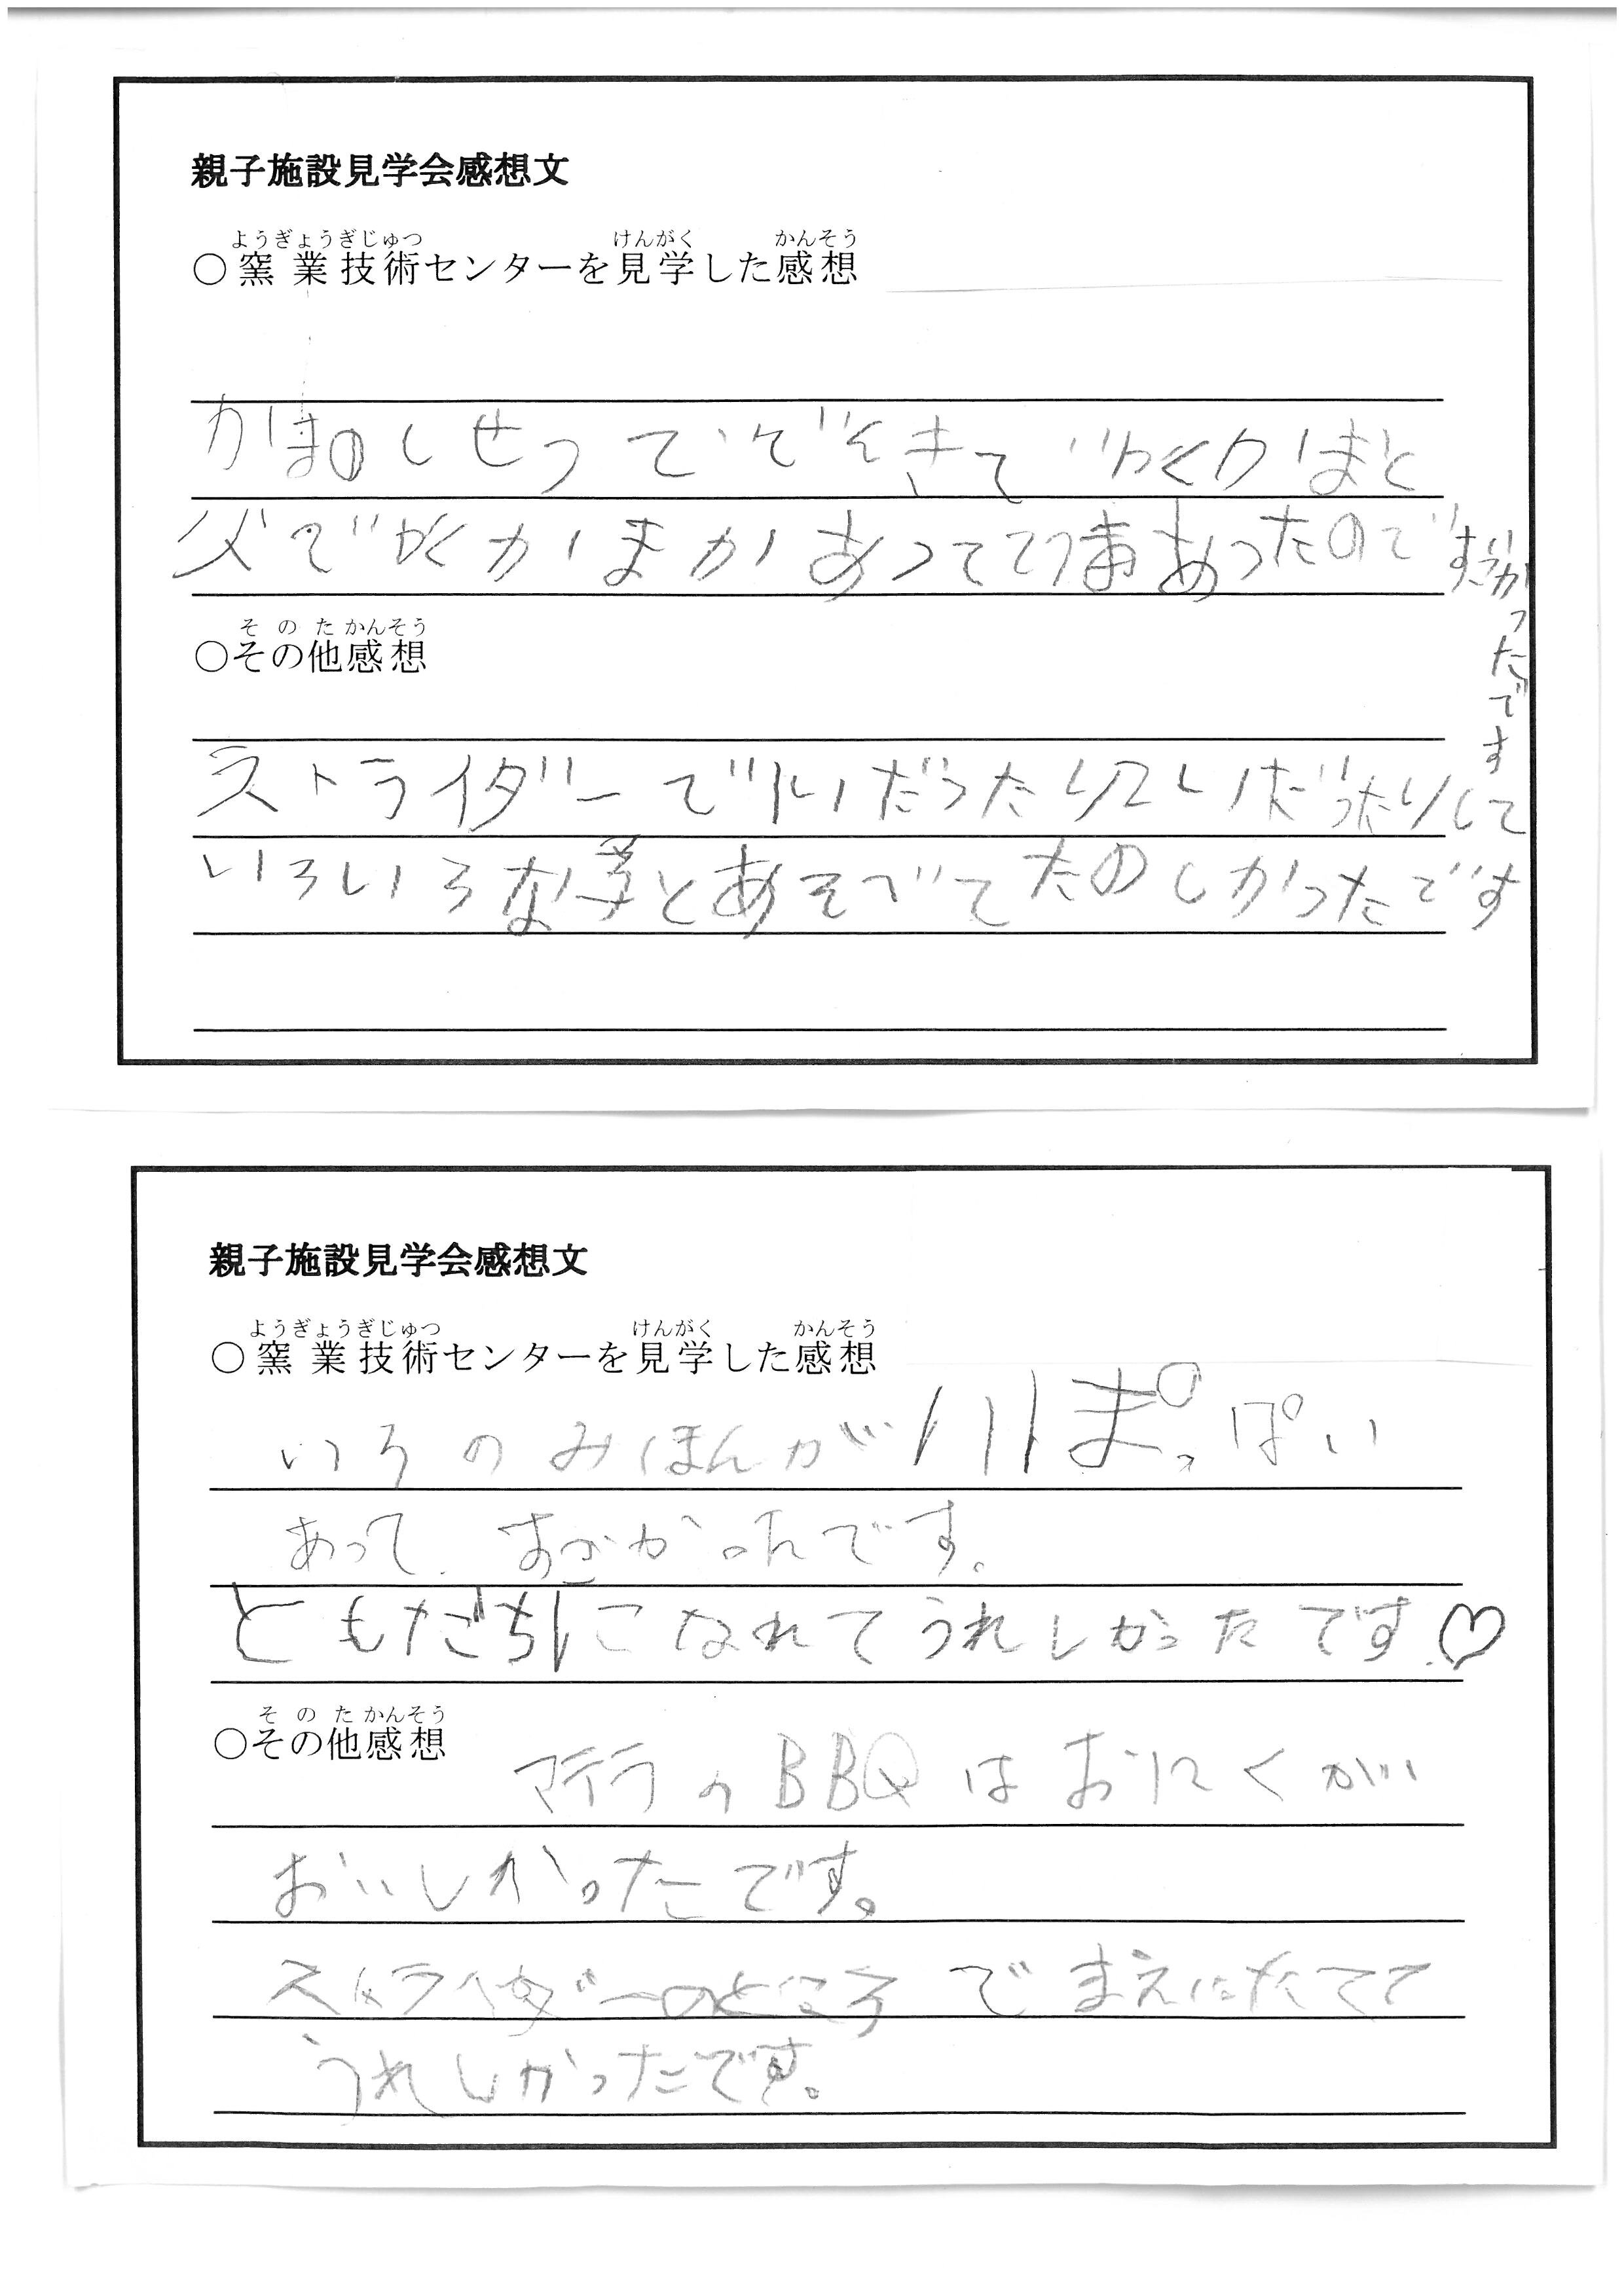 親子施設見学会感想文
ようぎょうぎじゅつ けんがく かんそう
○窯業技術センターを見学した感想
かまのしせつ
かまと
かまがあって あったので
すごかったです
そのたかんそう
○その他感想
ストライダーで1いだったり2いだったりして
いろいろな子とあそでてたのしかったです
親子施設見学会感想文
ようぎょうぎじゅつ けんがく かんそう
○窯業技術センターを見学した感想
いろのみほんがいっぱい
あって、すごかったです。
ともだちになれてうれしかったです♡
そのたかんそう
○その他感想
マテラのBBQはおにくが
おいしかったです。
ストライダーのところでまえにたてて
うれしかったです。